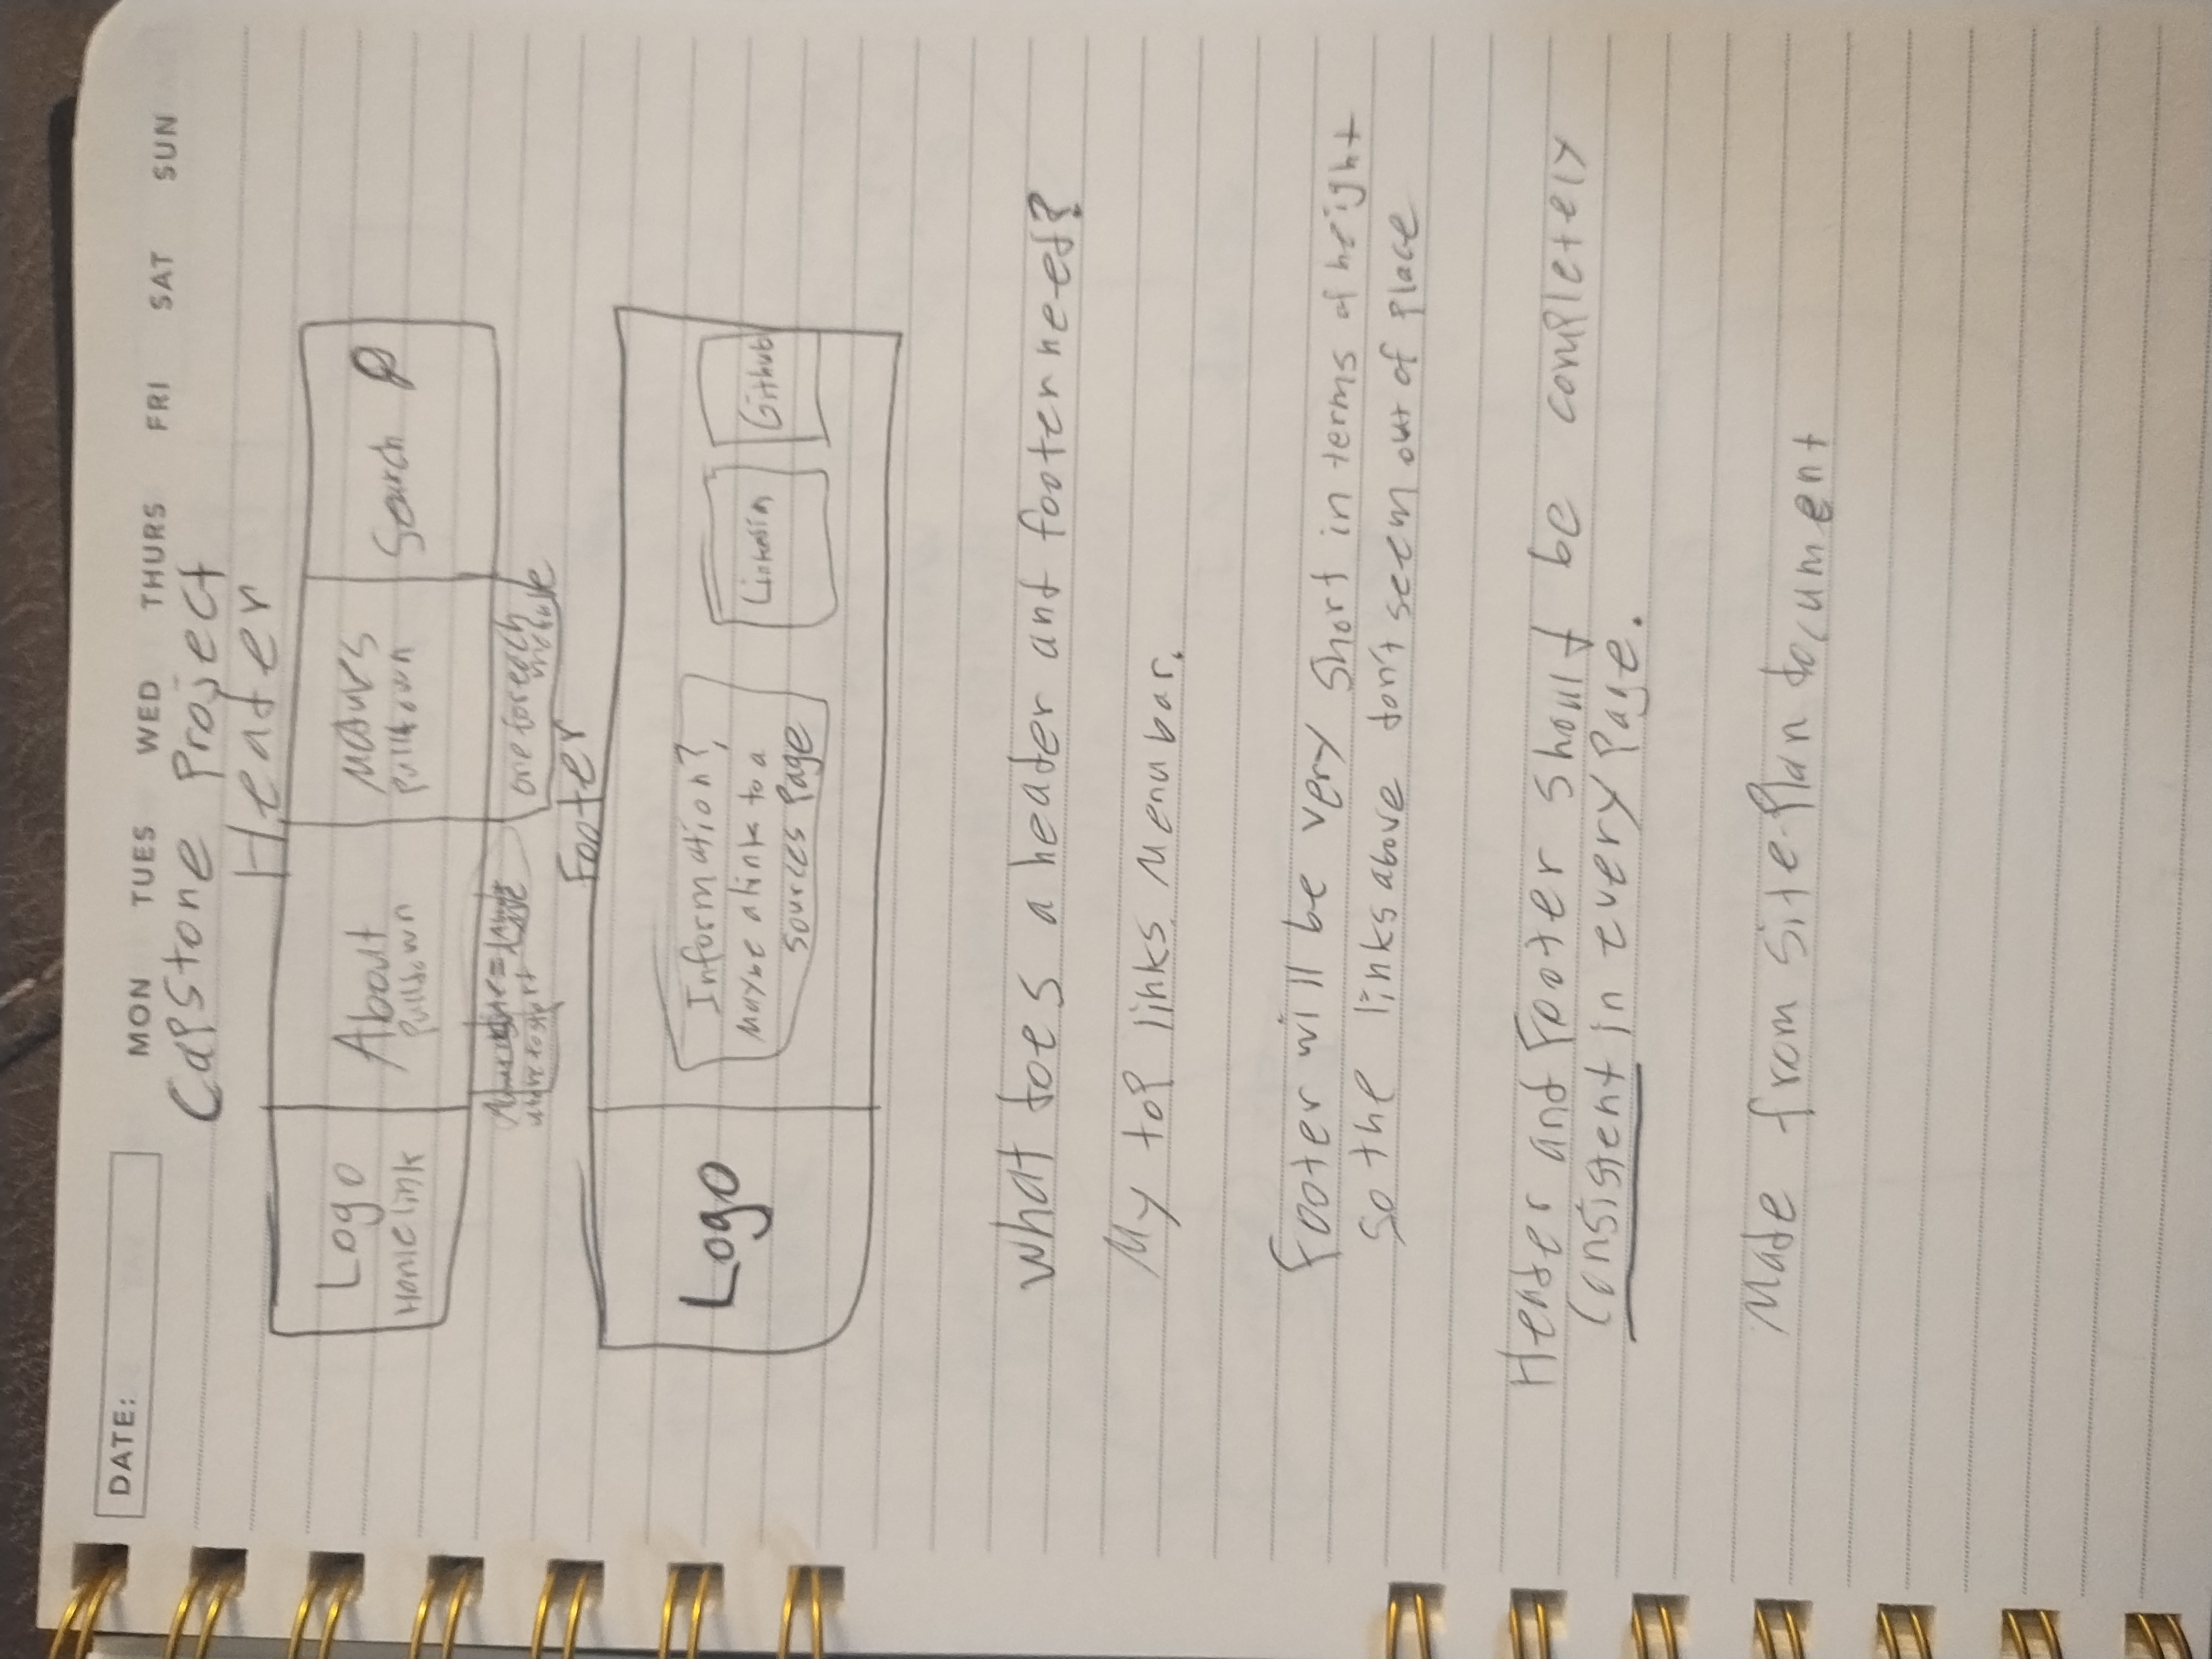 DATE:
MON TUES WED THURS FRI SAT SUN
Capstone Project
Header
Logo
Home link
About
Pulldown
Pulldown
Search
where to start
one for each
module
Footer
Logo
Information?
Maybe a link to a
sources Page
Github
What does a header and footer need?
My top links. Menu bar.
Footer will be very short in terms of height
so the links above don't seem out of place
Header and Footer should be completely
consistent in every page.
Made from site-plan document